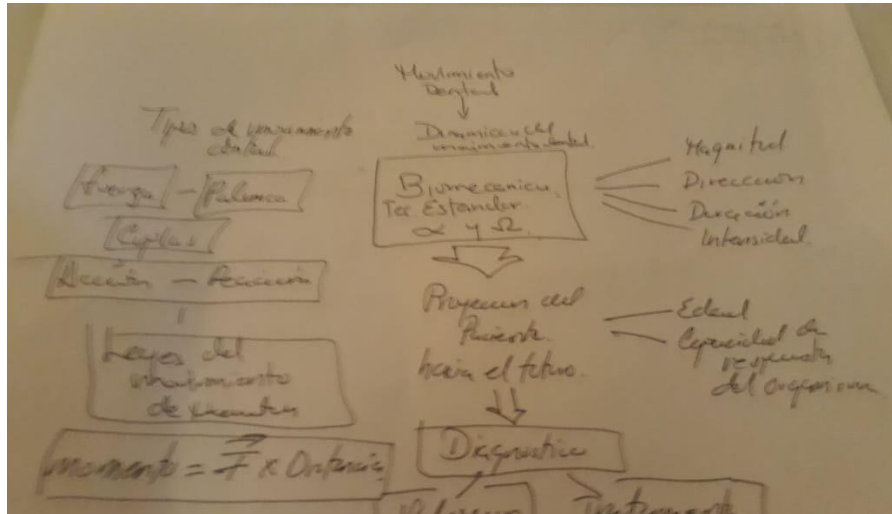 Movimiento
Dental
Tipos de movimiento
dental
Dinamica del
movimiento dental.
Fuerza - Palanca
Cuplas
Acción - Reacción
Leyes del
movimiento
de
Momento = F x Distancia
Biomecanica.
Tec. Estandar.
α y Ω.
Magnitud
Direccción
Duración
Intensidad.
Proyeccion del
Paciente
hacia el futuro.
Edad
Capacidad de
respuesta
del organismo
Diagnostico
Tratamiento